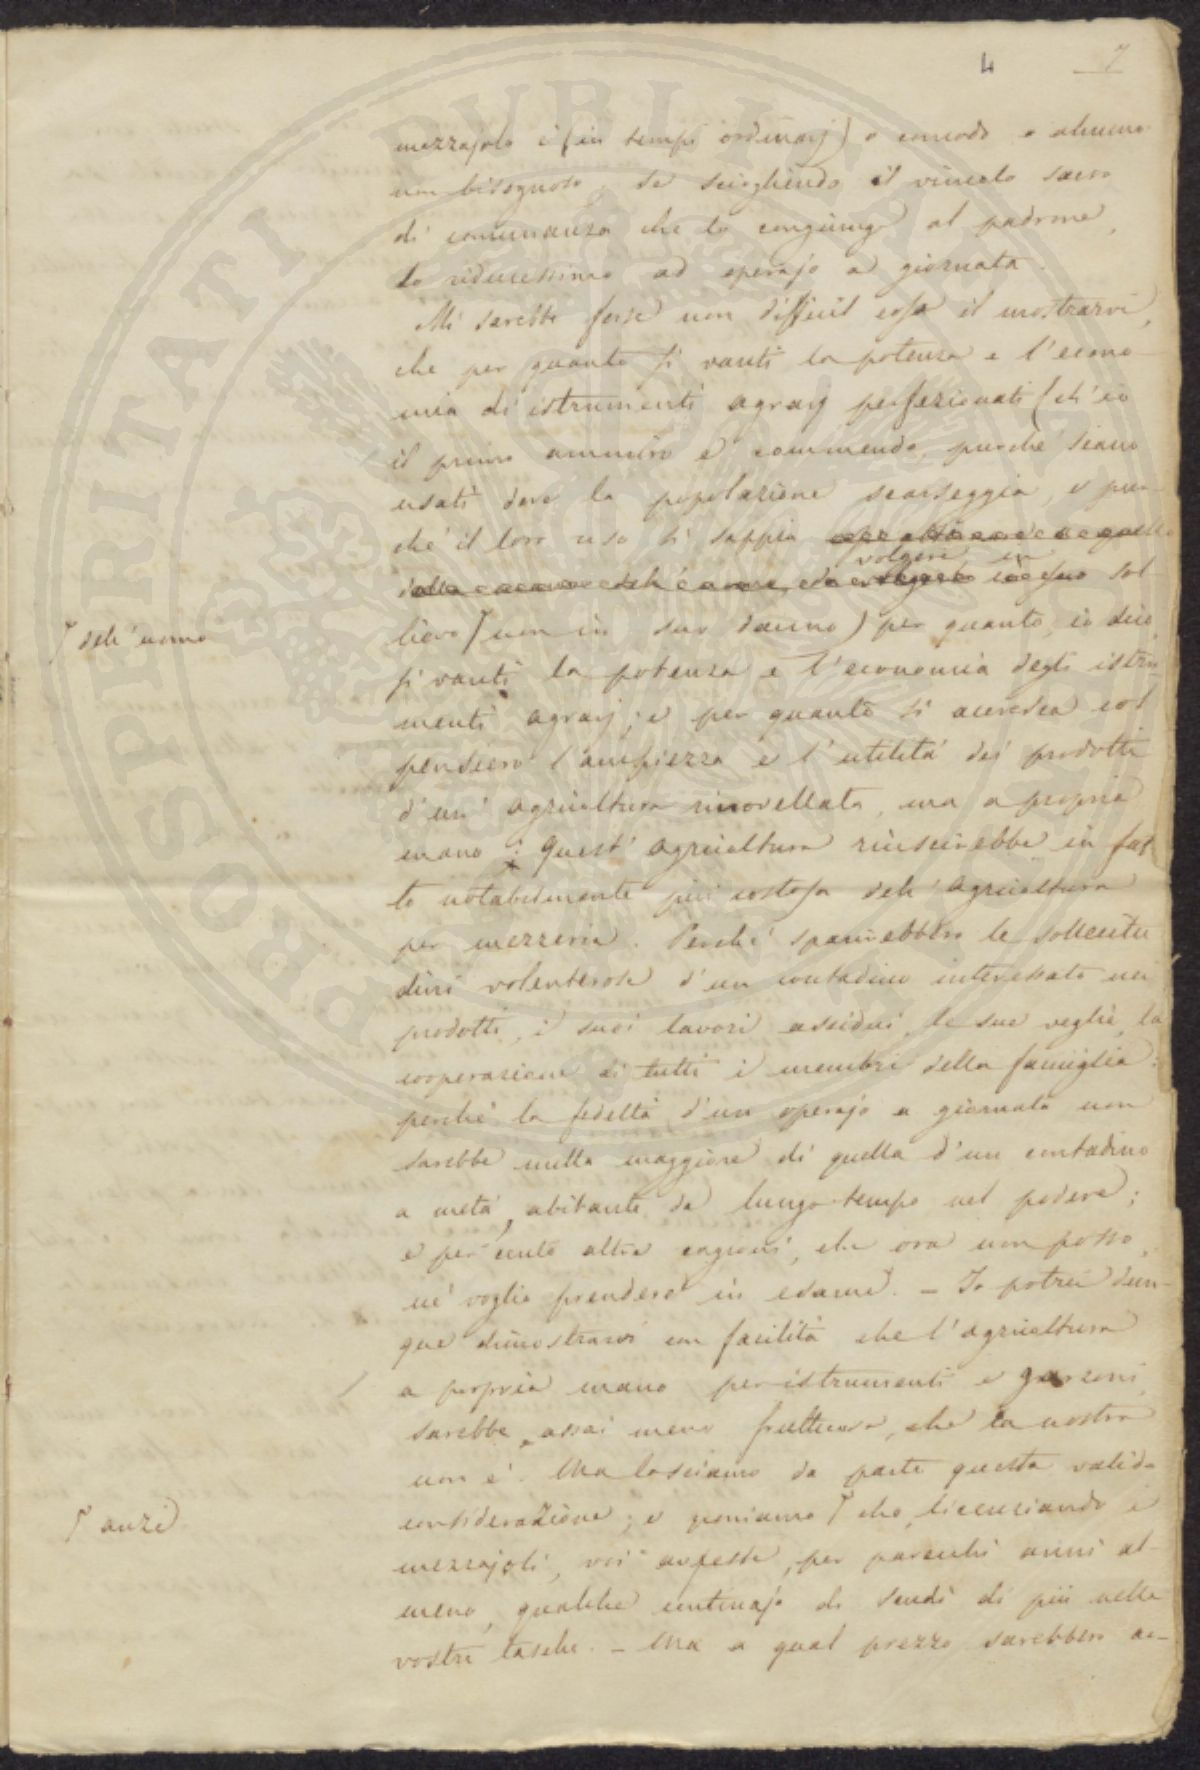 4 7
mezzajolo è (in tempi ordinarj) o comodo o almeno
non bisognoso, se sciogliendo il vincolo sacro
di comunanza che lo congiunge al padrone,
lo riducessimo ad operajo a giornata.
Mi sarebbe forse non difficil cosa il mostrarvi,
che per quanto si vanti la potenza e l'econo-
mia di istrumenti agrarj perfezionati (ch'io
il primo ammiro e commendo, purchè siano
usati dove la popolazione scarseggia, e pur-
chè il loro uso si sappia
volgere in
sol
lievo ⌈ non in suo danno) per quanto, io dico,
⌈ dell'uomo
si vanti la potenza e l'economia degli istru-
menti agrarj; e per quanto si accresca col
pensiero l'ampiezza e l'utilità dei prodotti
d'un'agricoltura rinovellata, ma a propria
mano: Quest'agricoltura riuscirebbe in fat
to notabilmente più costosa dell'agricoltura
per mezzeria. Perchè sparirebbero le sollecitu
dini volenterose d'un contadino interessato nei
prodotti, i suoi lavori assidui, le sue veglie, la
cooperazione di tutti i membri della famiglia:
perchè la fedeltà d'un operajo a giornata non
sarebbe nulla maggiore di quella d'un contadino
a metà, abitante da lungo tempo nel podere;
e per cento altre cagioni, che ora non posso,
nè voglio prendere in esame. – Io potrei dun-
que dimostrarvi con facilità che l'agricoltura
a propria mano per istrumenti e garzoni,
sarebbe assai meno fruttuosa, che la nostra
non è. Ma lasciamo da parte questa valida
considerazione; e poniamo ⌈ che, licenziando i
⌈ anzi
mezzajoli, voi aveste, per parecchi anni al-
meno, qualche centinajo di scudi di più nelle
vostre tasche. – Ma a qual prezzo sarebbero ac-